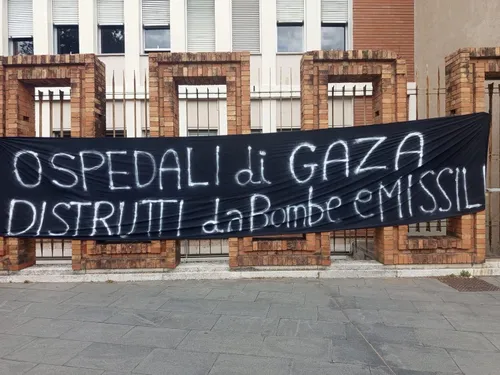 OSPEDALI di GAZA
DISTRUTTI da Bombe e MISSILI